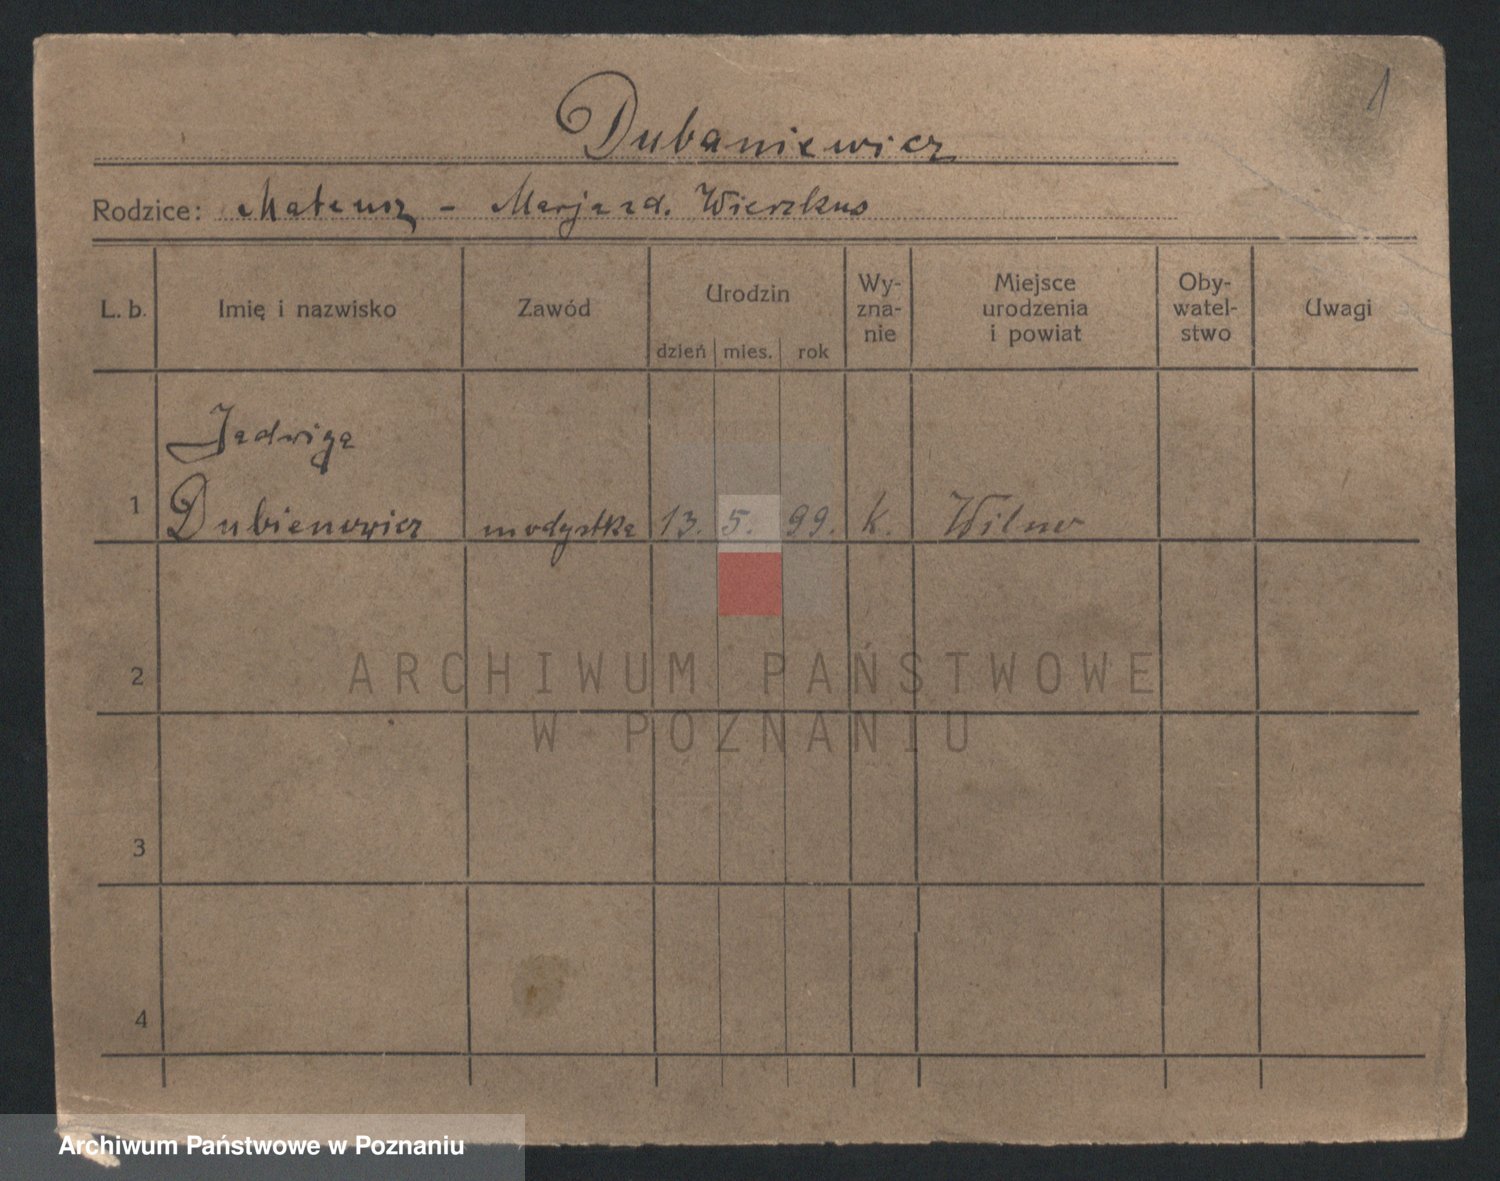 1
Dubaniewicz
Rodzice: Mateusz - Marja zd. Wierzkus
L. b.
Imię i nazwisko
Zawód
Urodzin
dzień mies. rok
Wy-
zna-
nie
Miejsce
urodzenia
i powiat
Oby-
watel-
stwo
Uwagi
Jadwiga
1 Dubienowicz modystka 13. 5. 99. k. Wilno
2
ARCHIWUM PAŃSTWOWE
W POZNANIU
3
4
Archiwum Państwowe w Poznaniu